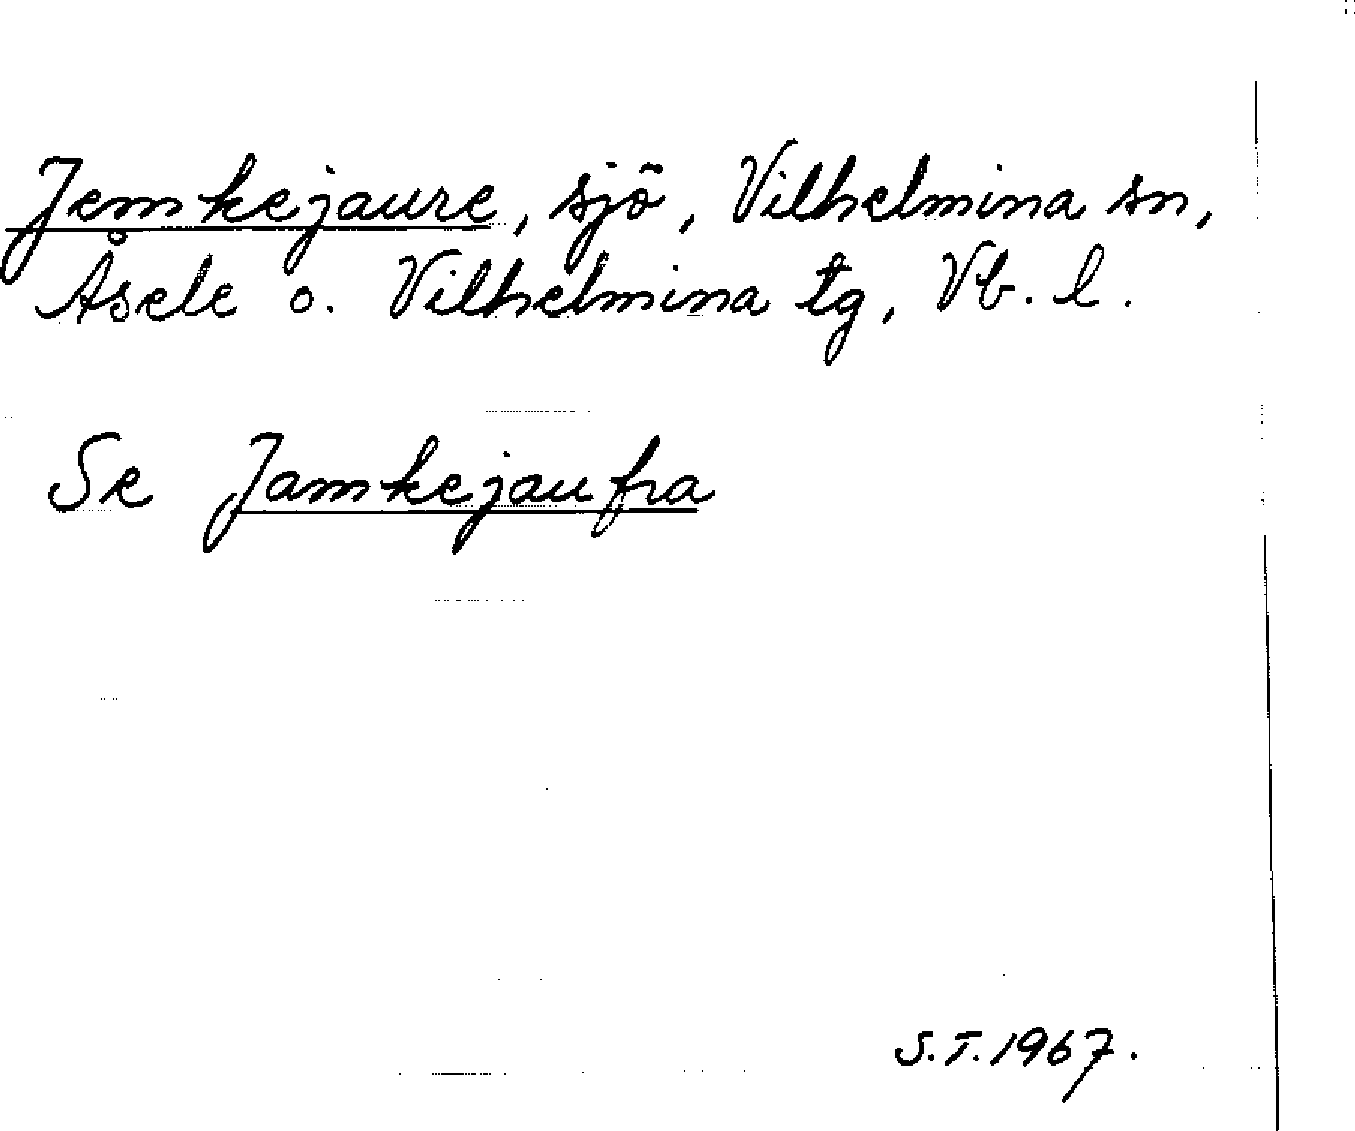 Jemkejaure, sjö, Vilhelmina sn,
Åsele o. Vilhelmina tg, Vb. l.
Se Jamkejaufra
S.T. 1967.